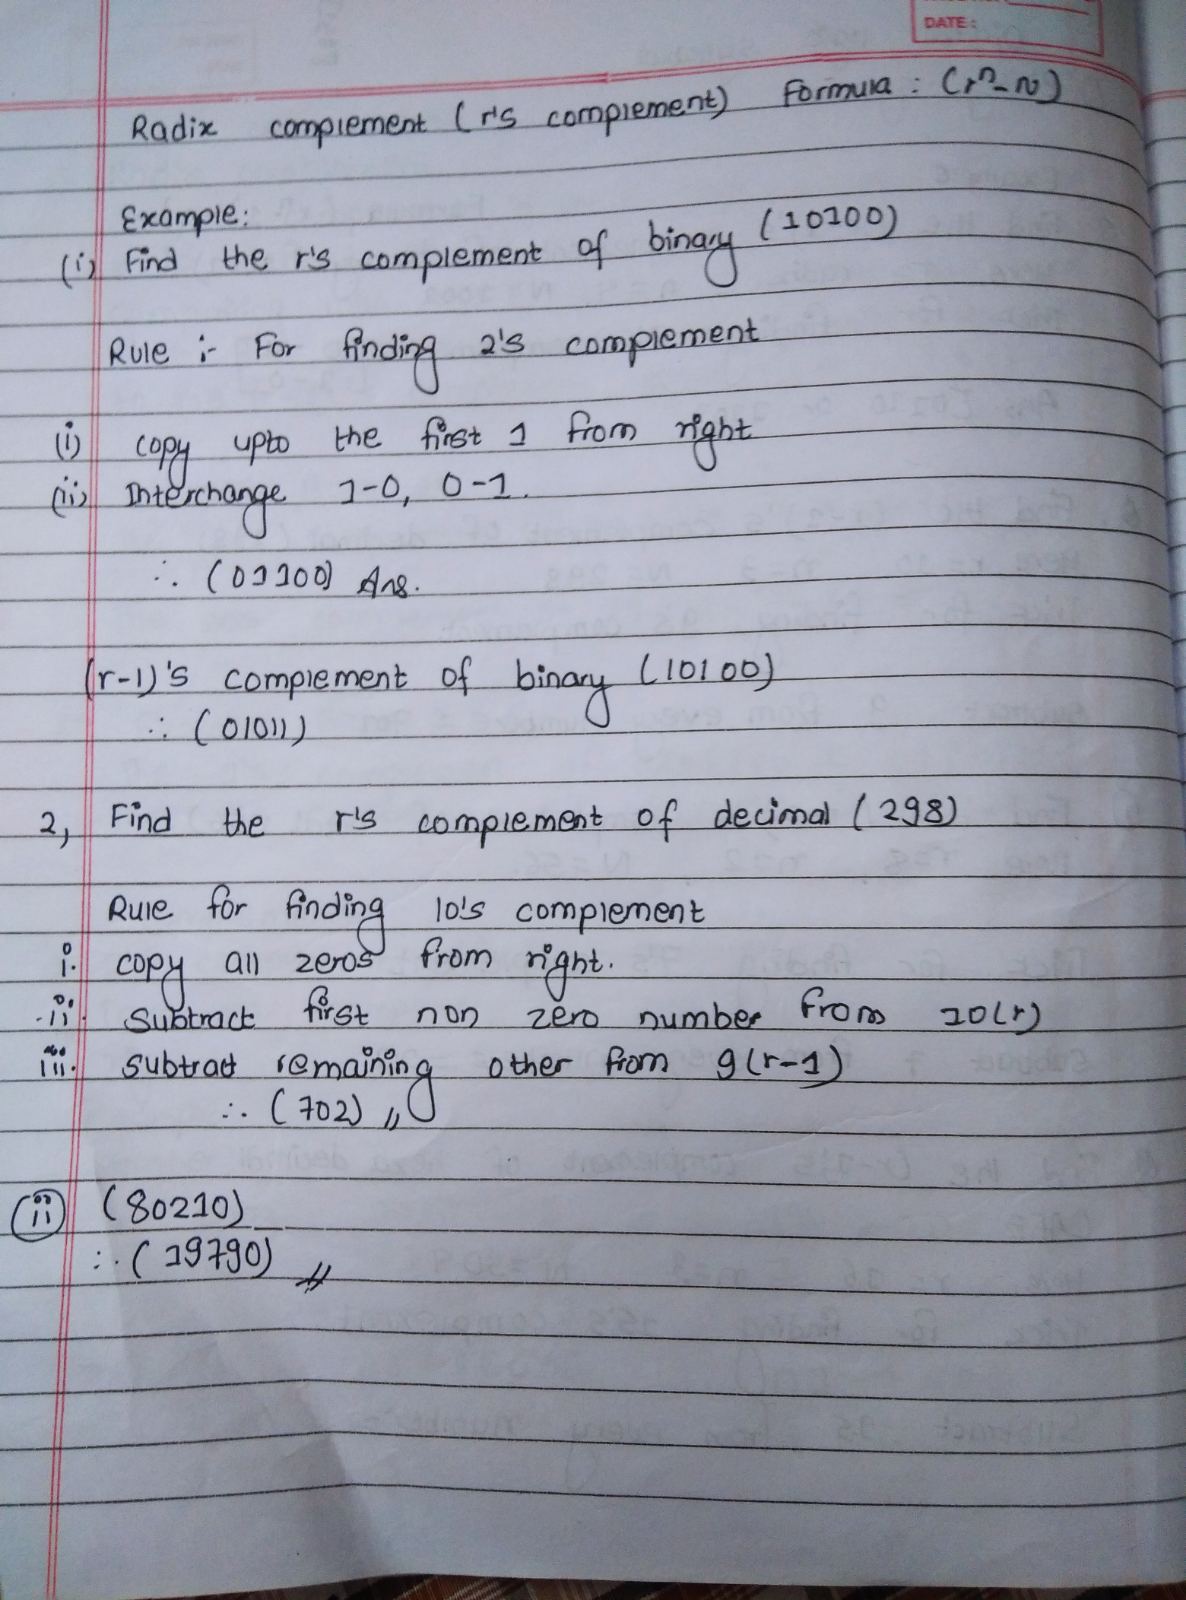 DATE:
Radix complement (r's complement) Formula : (rⁿ-N)
Example:
(i) Find the r's complement of binary (10100)
Rule :- For finding 2's complement
(i) copy upto the first 1 from right
(ii) Interchange 1-0, 0-1.
∴ (01100) Ans.
(r-1)'s complement of binary (10100)
∴ (01011)
2, Find the r's complement of decimal (298)
Rule for finding 10's complement
i. copy all zeros from right.
ii. Subtract first non zero number from 10(r)
iii. subtract remaining other from 9(r-1)
∴ (702) //
(ii) (80210)
∴ (19790) //